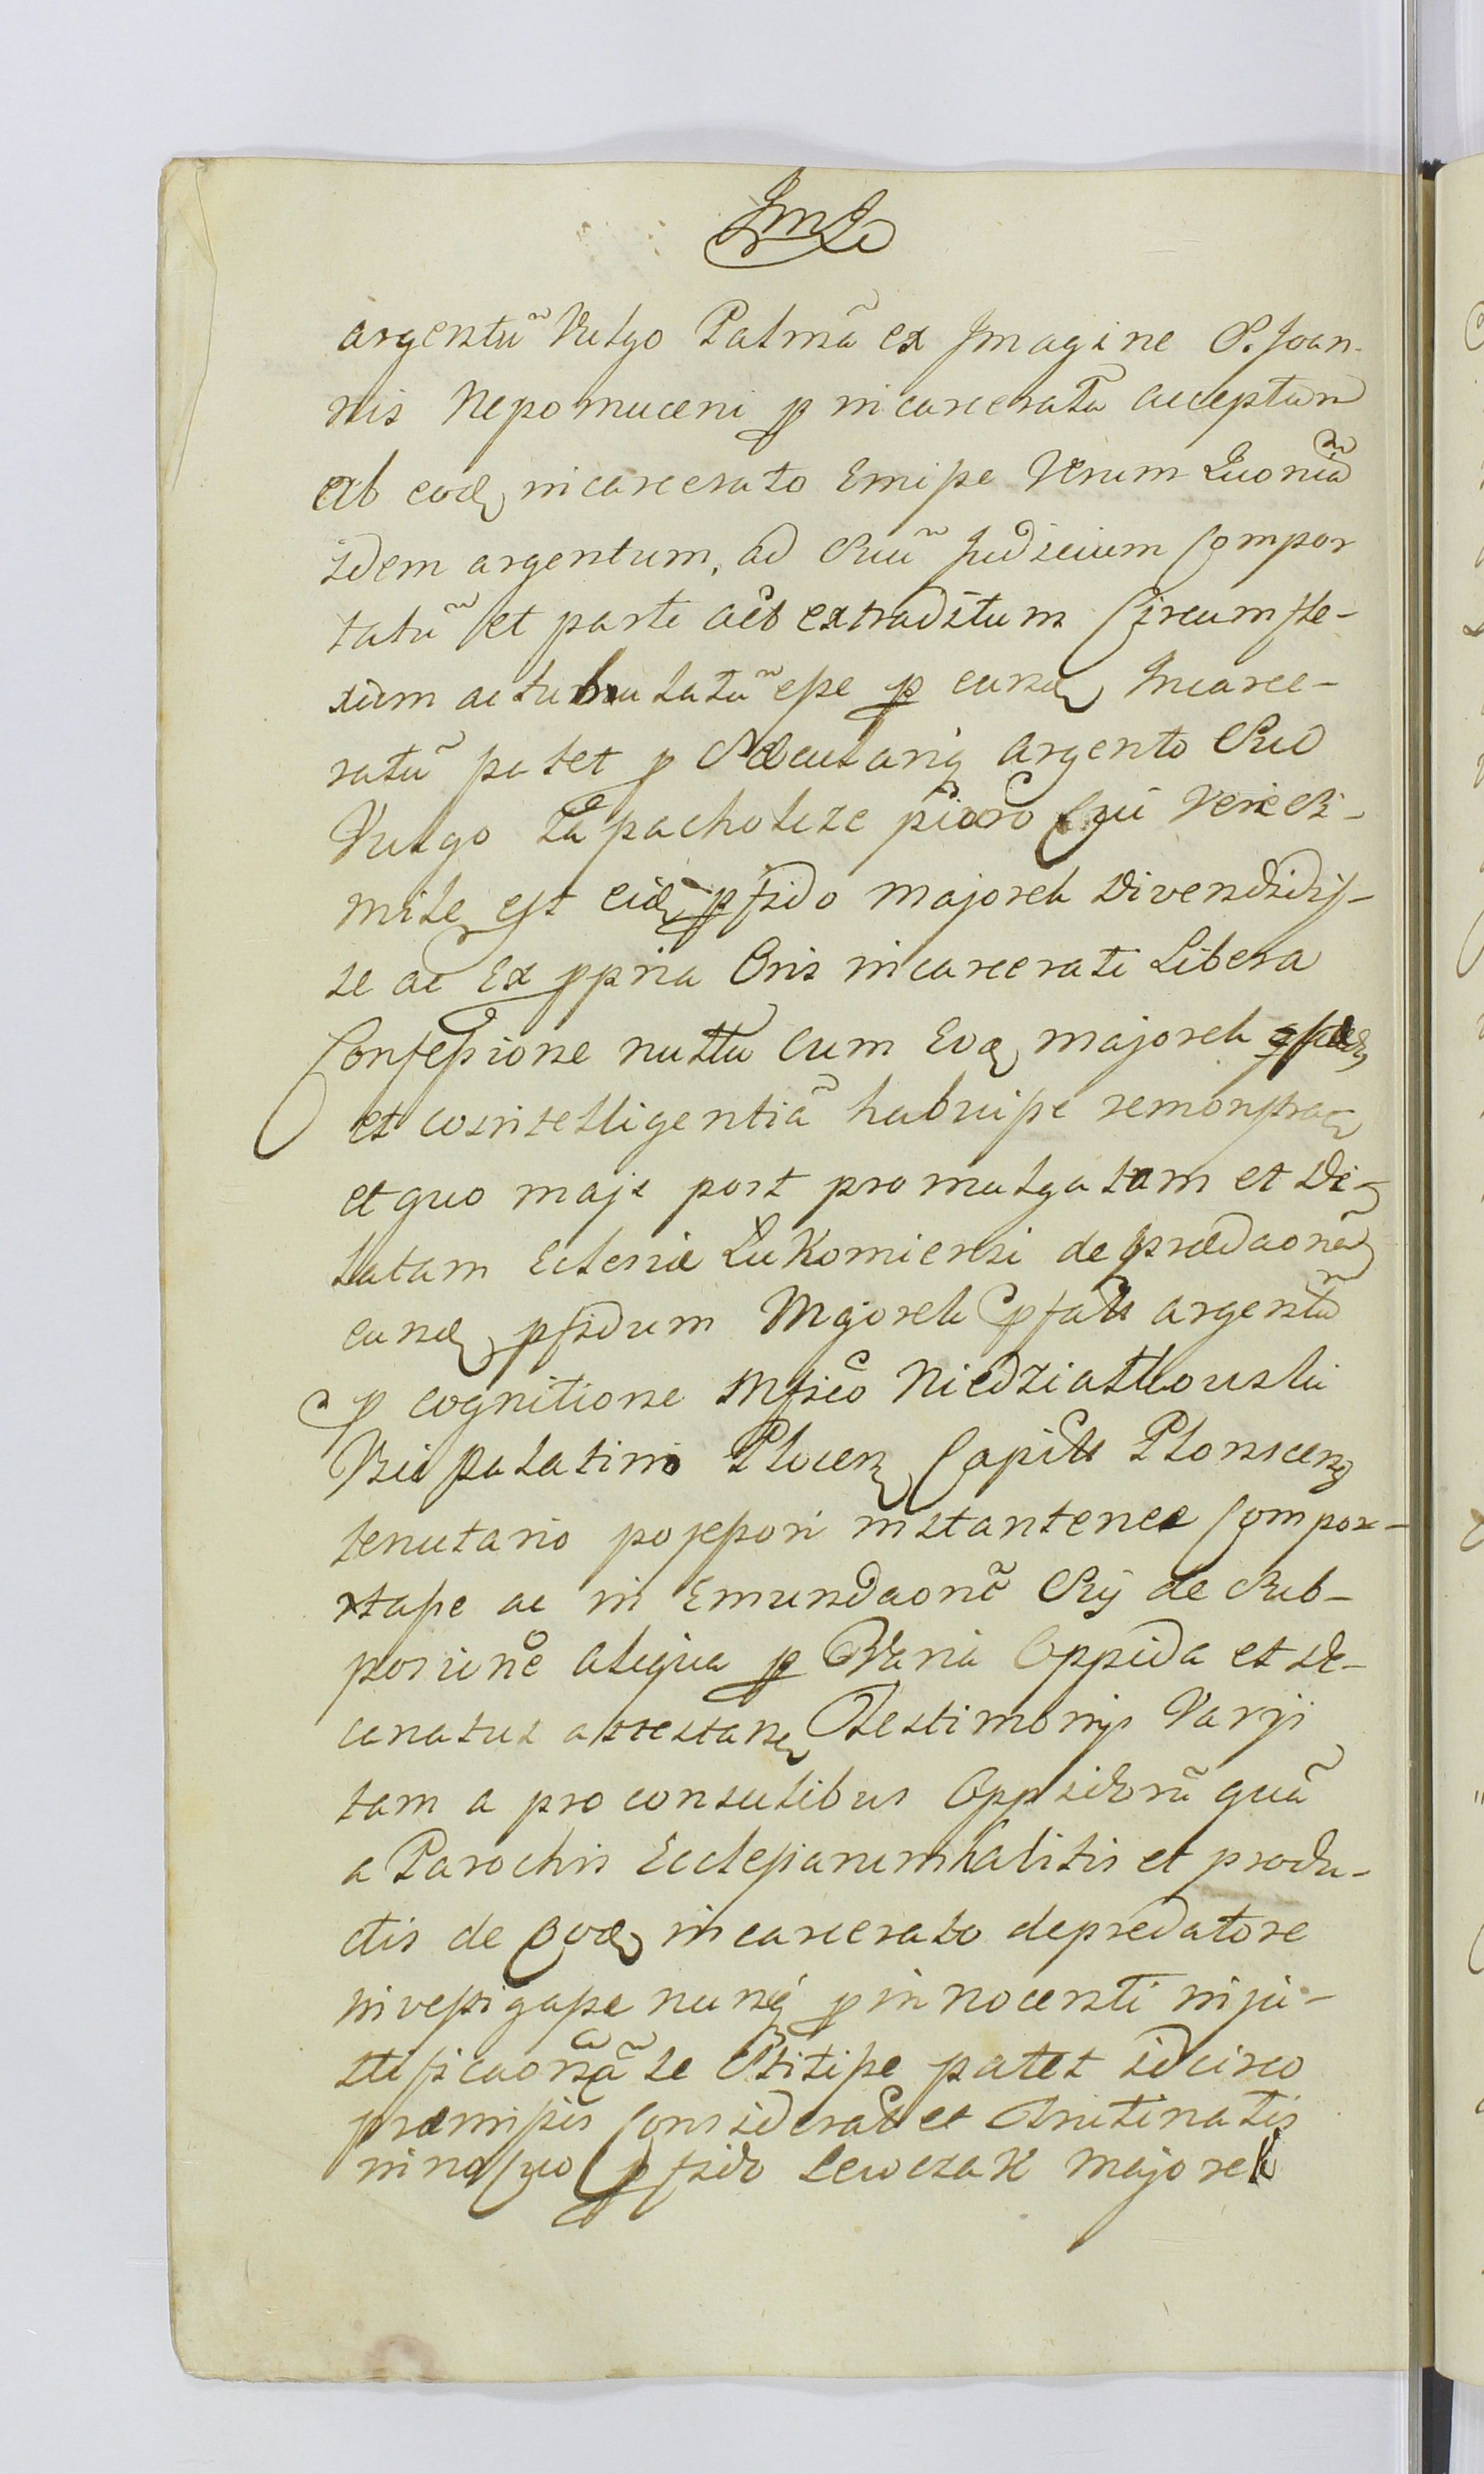 argentũ Vulgo Palmã ex Imagine S. Joan-
nis Nepomuceni p incarceratũ acceptam
ab eod incarcerato Emisse Verum Quoniã
idem argentum, ad suũ Judicium Compor
tatũ et parti act extraditum Circumfle-
xum ac tubulatũ esse p eund Incarce-
ratũ patet p argento suo
Vulgo pacholize Verisi-
mile est eid pfido Majorek divendidis-
se ac Ex ppria Oris incarcerati Libera
Confessione nulla cum Eod majorek
et cointelligentiã habuisse remonstra
et quo maje post promulgatam et di-
latam Eclesiæ Lukomiensi deprædaonẽ
eund pfidum Majorek argentũ
p cognitione Mfico Niedziałkowski
Vici palatino Plocen Capit Plonscen
tenutario possessori instantenee Compor-
tasse ac in Emundaonẽ Sui de Sub-
posiune aliqua p Varia Oppida et De-
canatus attestan Testimonijs Varijs
tam a proconsulibus Oppidorũ quã
a Parochis Ecclesiarum habitis et produ-
ctis de eod incarcerato depredatore
investigasse nunq p innocenti inju-
stificaonẽ se stitisse patet idcirco
præmissis Considerat et trutinatis
pfido Lewczak Majorek